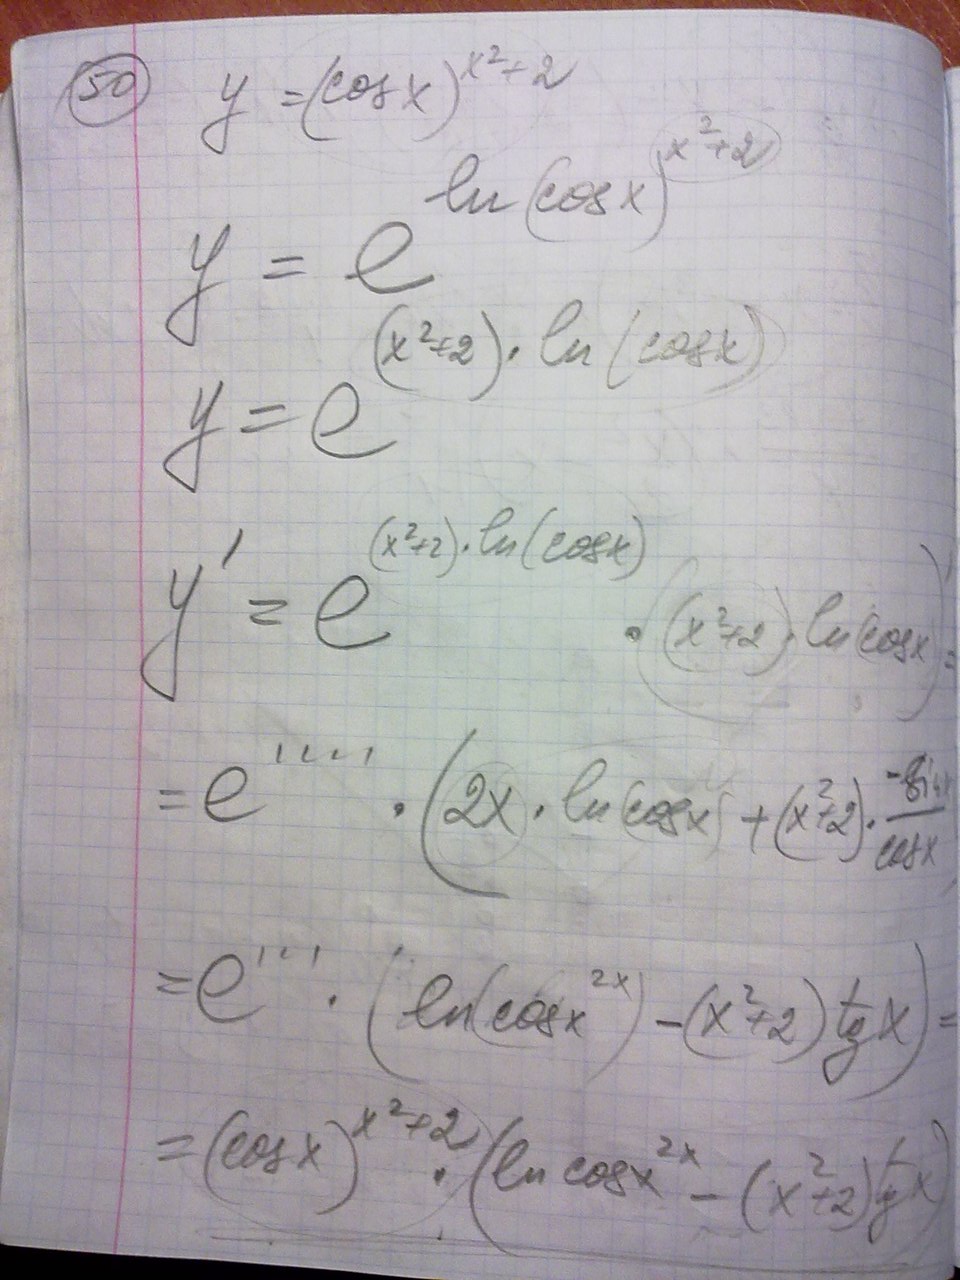 50 y = (cos x)^{x^2+2}
y = e^{ln(cos x)^{x^2+2}}
y = e^{(x^2+2)·ln(cos x)}
y' = e^{(x^2+2)·ln(cos x)} · ((x^2+2)·ln(cos x))' =
= e^{''''} · (2x · ln(cos x) + (x^2+2) · \frac{-sin x}{cos x}
= e^{'''} · (ln(cos x^{2x}) - (x^2+2) tg x) =
= (cos x)^{x^2+2} · (ln cos x^{2x} - (x^2+2) tg x)